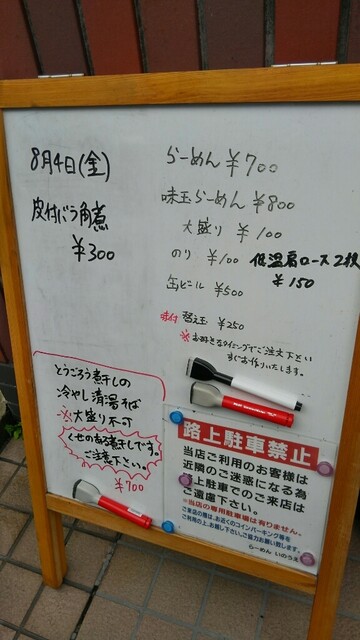 8月4日(金)
皮付バラ角煮
¥300
らーめん ¥700
味玉らーめん ¥800
大盛り ¥100
のり ¥100 低温肩ロース2枚
¥150
缶ビール ¥500
味付 替え玉 ¥250
※お好きなタイミングでご注文下さい
すぐお作りいたします。
とうごろう煮干しの
冷やし清湯そば
※大盛り不可
くせのある煮干しです。
ご注文下さい。
¥700
路上駐車禁止
当店ご利用のお客様は
近隣のご迷惑になる為
路上駐車でのご来店は
ご遠慮下さい。
※当店の専用駐車場は有りません。
ご来店の際は、お近くのコインパーキング等を
ご利用の上、お越し下さい。ご協力お願い致します。
らーめん いのうえ